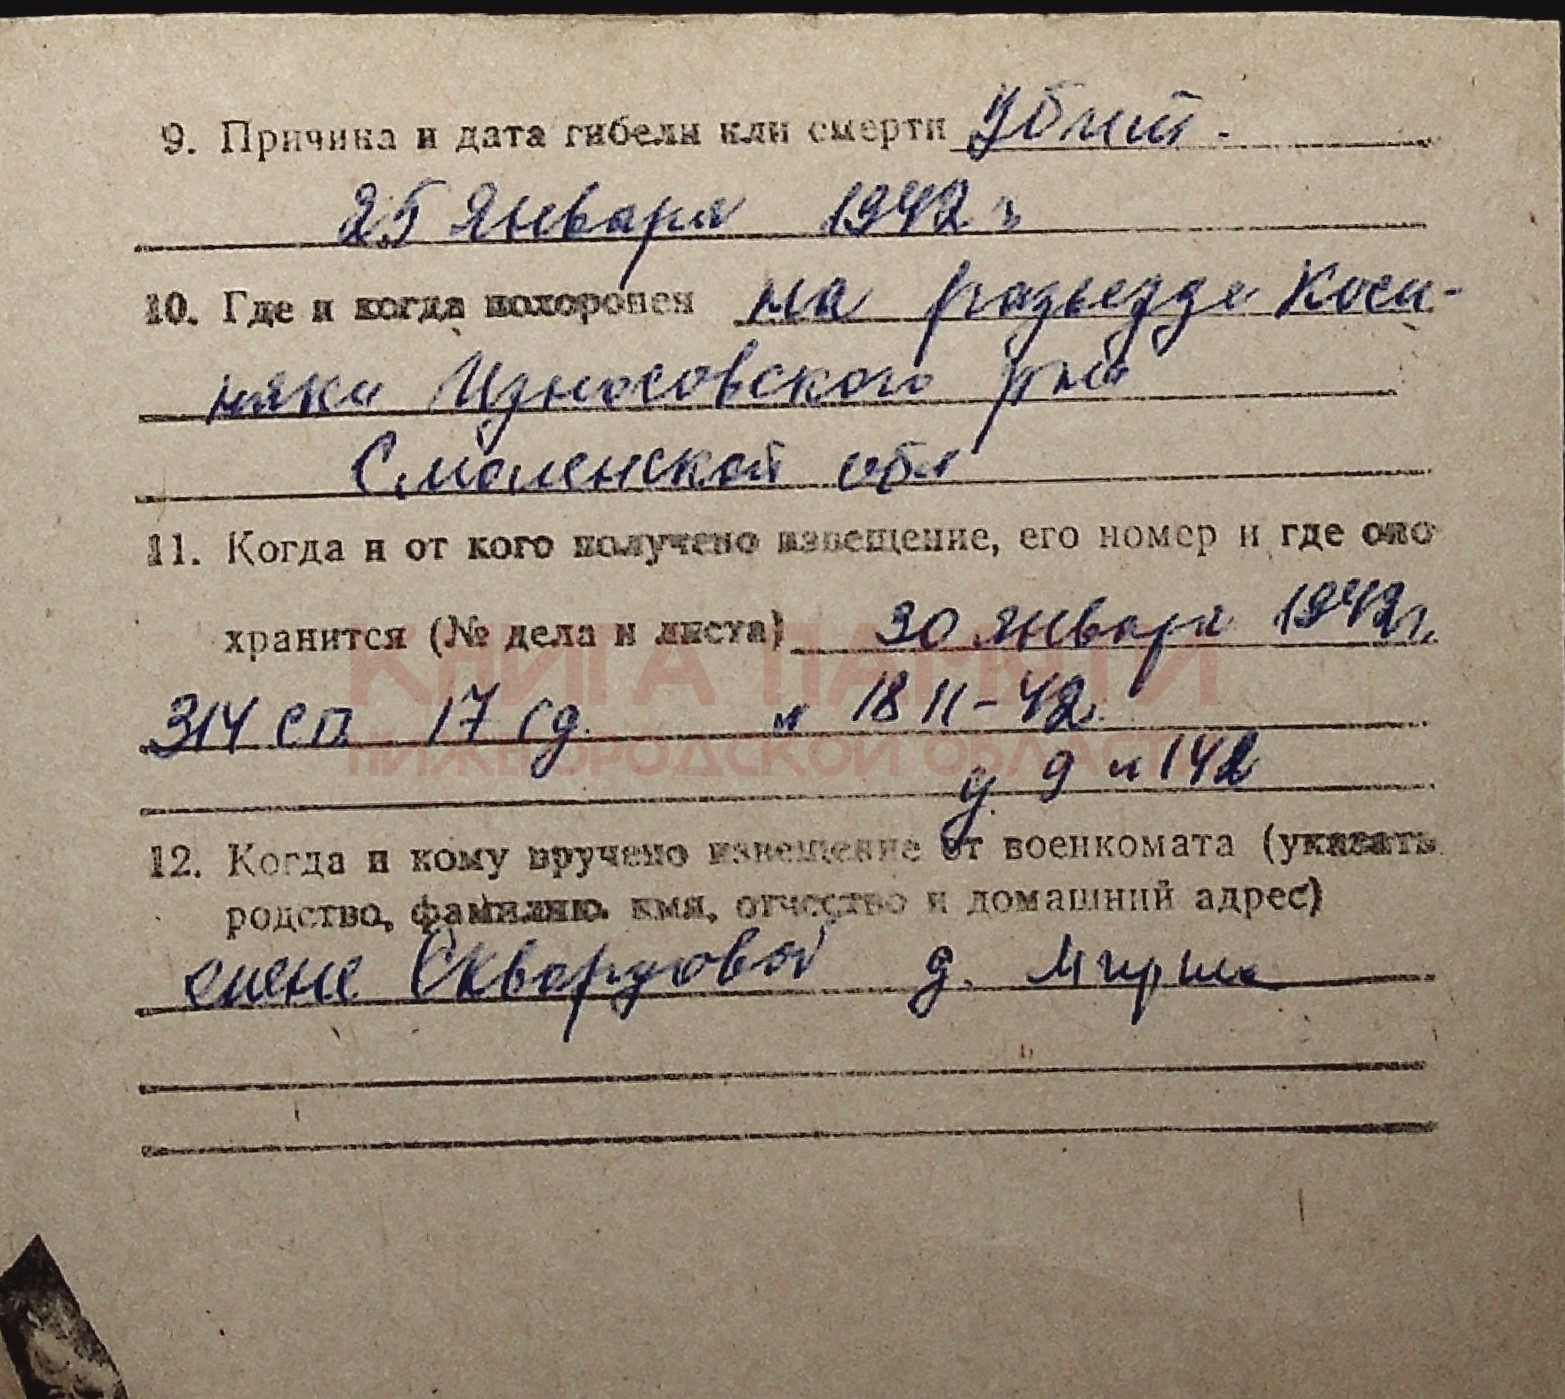 9. Причина и дата гибели или смерти Убит.
25 Января 1942 г
10. Где и когда похоронен на разъезде Коси-
няки Износовского р-на
Смоленской обл
11. Когда и от кого получено извещение, его номер и где оно
хранится (№ дела и листа) 30 января 1942 г.
КНИГА ПАМЯТИ
314 сп 17 сд. 18 II-42
НИЖЕГОРОДСКОЙ ОБЛАСТИ
д 9 л 142
12. Когда и кому вручено извещение от военкомата (указать
родство, фамилию, имя, отчество и домашний адрес)
Скварцовой д.